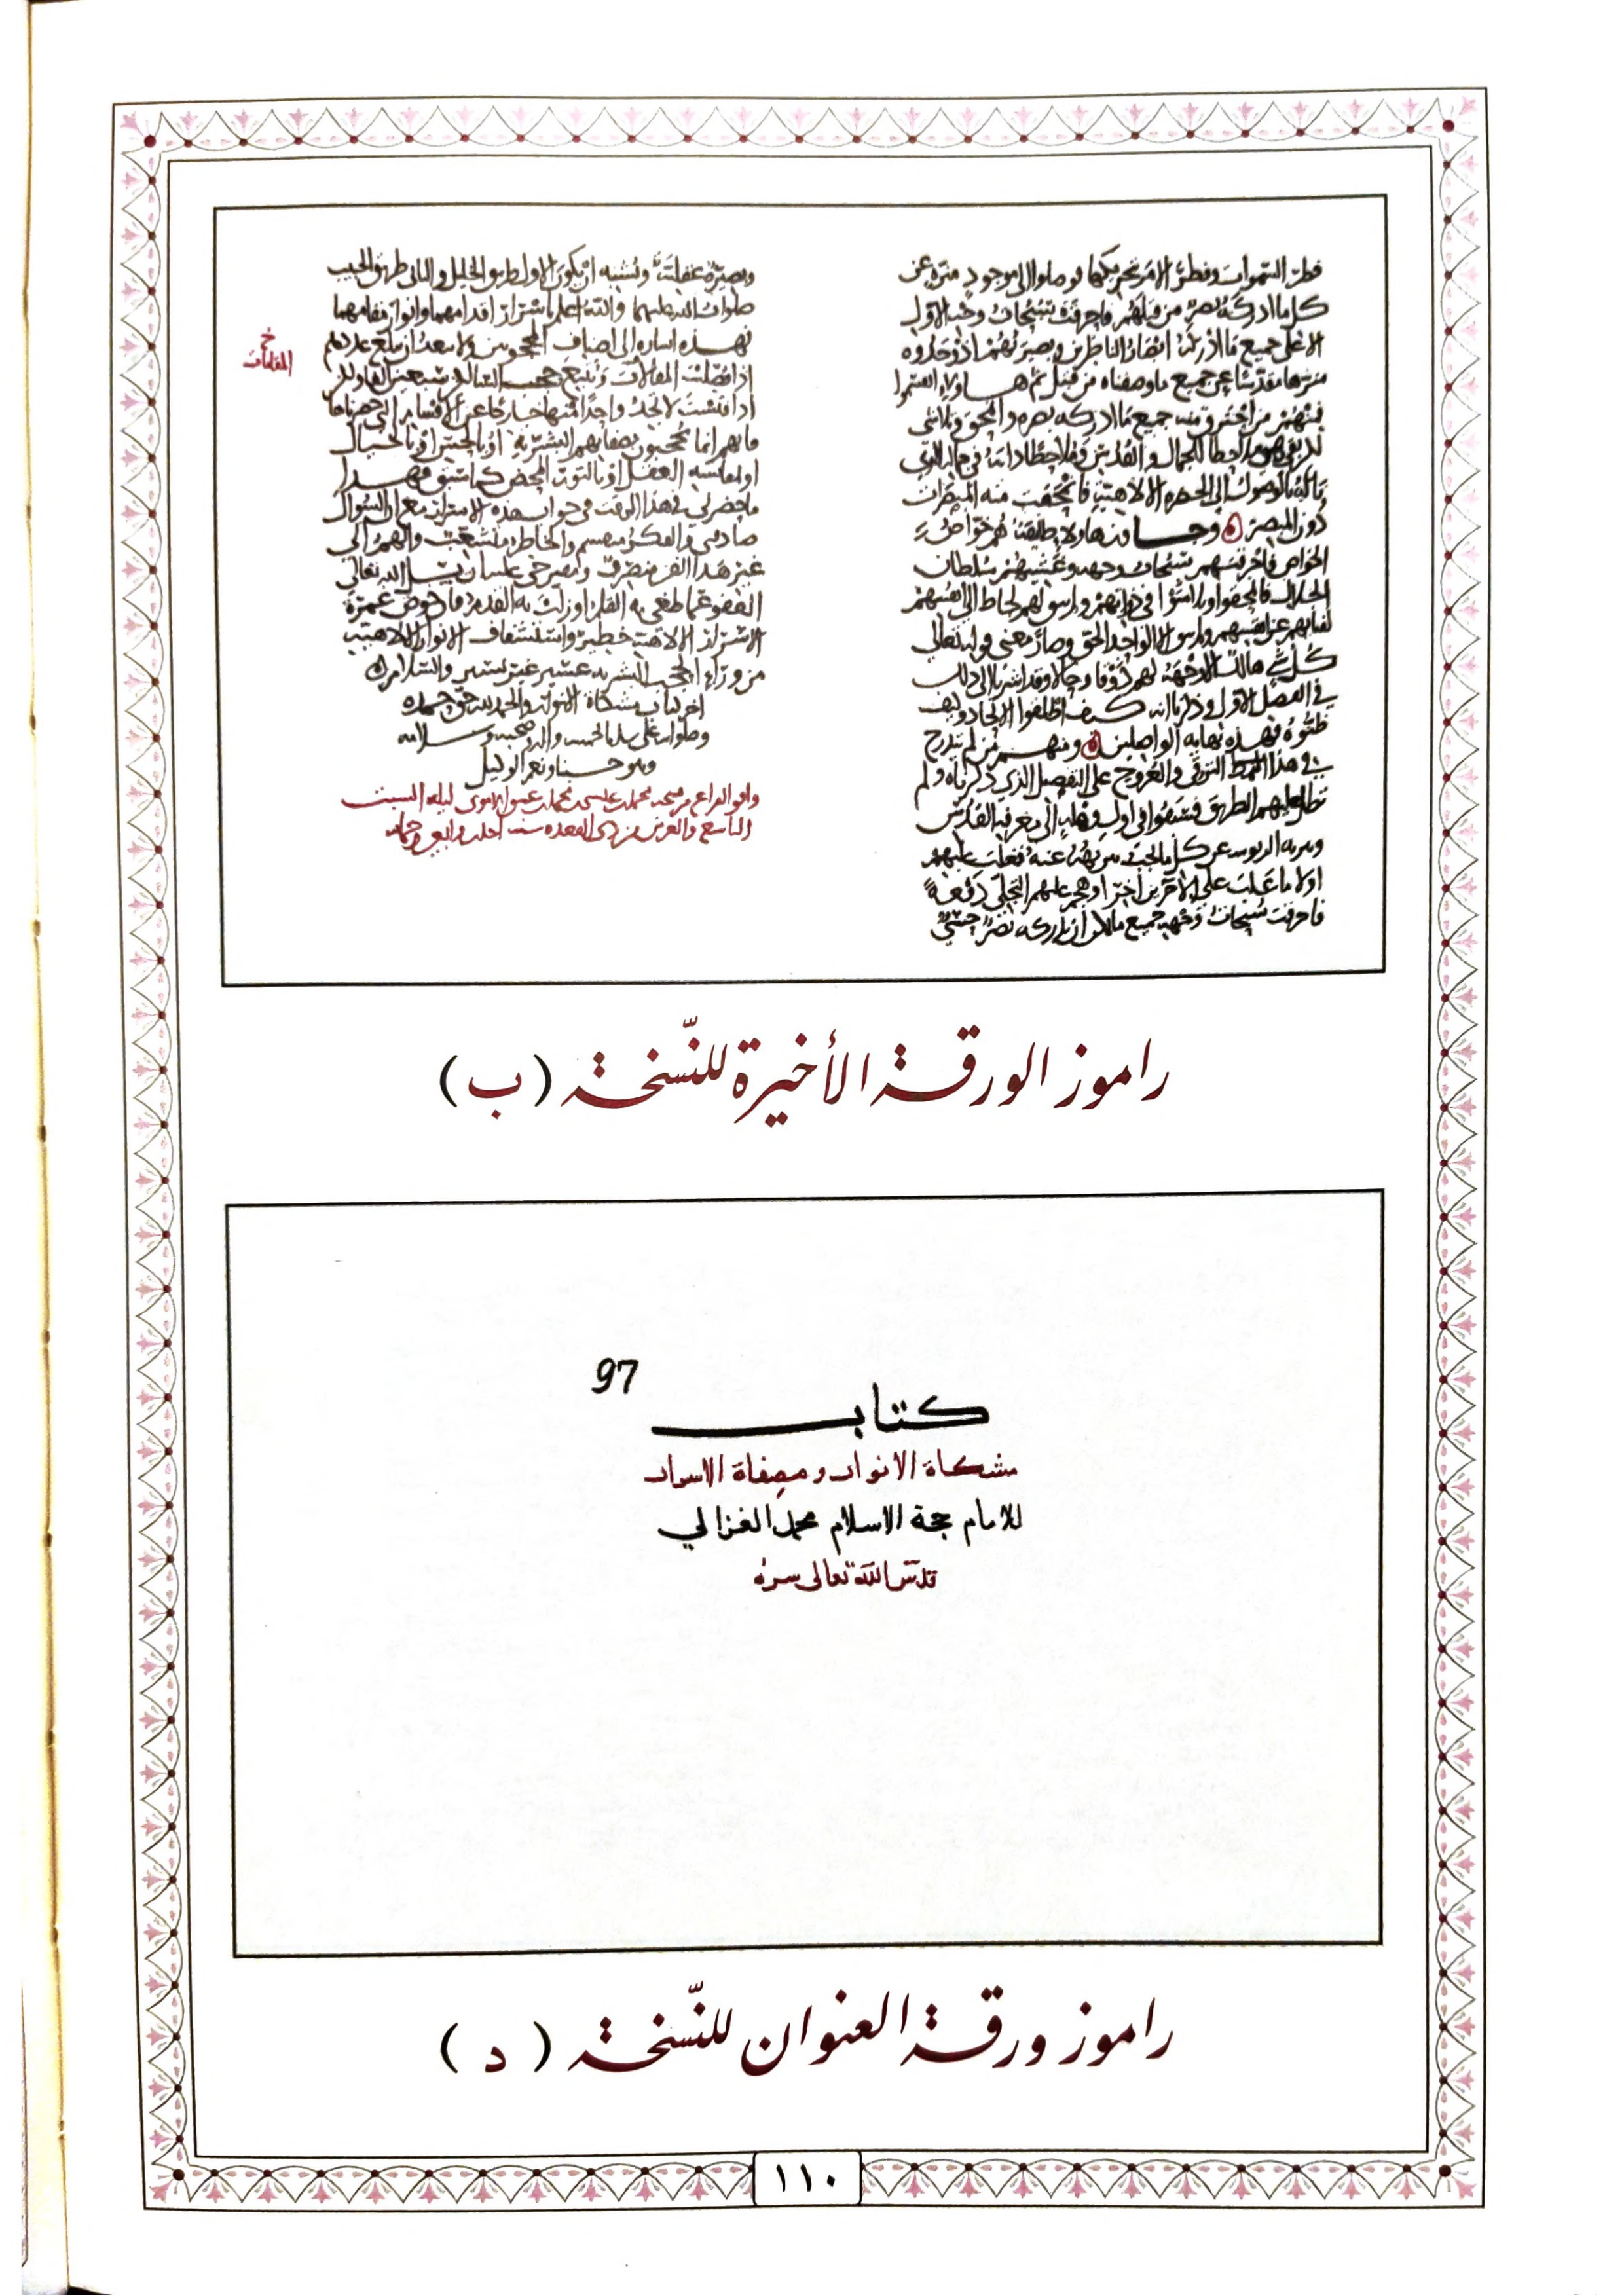 فطر السموات وفطر الامر بتحريكها فوصلوا الى موجود منزه عن
كل ما ادركه بصر من قبلهم فاحرقت سبحات وجه الاول
الاعلى جميع ما ادركه ابصار الناظرين وبصيرتهم اذ وجدوه
منزها مقدسا عن جميع ما وصفناه من قبل ثم هاولاء انقسموا
فمنهم من احترق منه جميع ما ادركه بصره وانمحق وتلاشى
لكن بقي هو ملاحظا للجمال والقدس وملاحظا ذاته في جماله الذي
ناله بالوصول الى الحضرة الالاهية فانمحقت منه المبصرات
دون المبصر وجاوز هاولاء طايفة هم خواص
الخواص فاحرقتهم سبحات وجهه وغشيهم سلطان
الجلال فانمحقوا وتلاشوا في ذواتهم ولم يبق لهم لحاظ الى انفسهم
لفنايهم عن انفسهم ولم يبق الا الواحد الحق وصار معنى قوله تعالى
كل شي هالك الا وجهه لهم ذوقا وحالا وقد اشرنا الى ذلك
في الفصل الاول وذكرنا انه كيف اطلقوا الاتحاد وكيف
ظنوه فهذه نهاية الواصلين ومنهم من لم يتدرج
في هذا النمط الترقي والعروج على التفصيل الذي ذكرناه ولم
تطل عليهم الطريق فسبقوا في اول وهلة الى معرفة القدس
وتنزيه الربوبيه عن كل ما يجب تنزيهه عنه فغلب عليهم
اولا ما غلب على الآخرين اخرا وهجم عليهم التجلي دفعة
فاحرقت سبحات وجهه جميع ما يمكن ان يدركه بصر حسي
وبصيرة عقلية ويشبه ان يكون الاول طريق الخليل والثاني طريق الحبيب
صلوات الله عليهما والله اعلم باسرار اقدامهما وانوار مقامهما
فهذه اشارة الى اصناف المحجوبين ولا يبعد ان يبلغ عددهم
خ
المقامات
اذا فصلت المقالات وتتبع حجب السالكين سبعين الفا ولكن
اذا فتشت لا تجد واحدا منها خارجا عن الاقسام التي حصرناها
فانهم انما يحجبون بصفاتهم البشرية او بالحس او بالخيال
او بمقايسة العقل او بالنور المحض كما سبق فهذا
ما حضرني في هذا الوقت في جواب هذه الاسئلة مع ان السؤال
صادفني والفكر منقسم والخاطر متشعب والهم الى
غير هذا الفن منصرف ومقترحي عليه ان يسل الله تعالى
العفو عما طغى به القلم او زلت به القدم فان خوض غمرة
الاسرار الالاهية خطير واستشفاف الانوار الالاهية
من وراء الحجب البشريه عسير غير يسير والسلام
اخر كتاب مشكاة الانوار والحمد لله حق حمده
وصلواته على سيدنا محمد واله وصحبه وسلامه
وهو حسبنا ونعم الوكيل
ليلة السبت
التاسع والعشرين من ذي القعده سنة
راموز الورقة الأخيرة للنّسخة (ب)
97
كتاب
مشكاة الانوار ومصفاة الاسرار
للامام حجة الاسلام محمد الغزالي
قدس الله تعالى سره
راموز ورقة العنوان للنّسخة (د)
١١٠